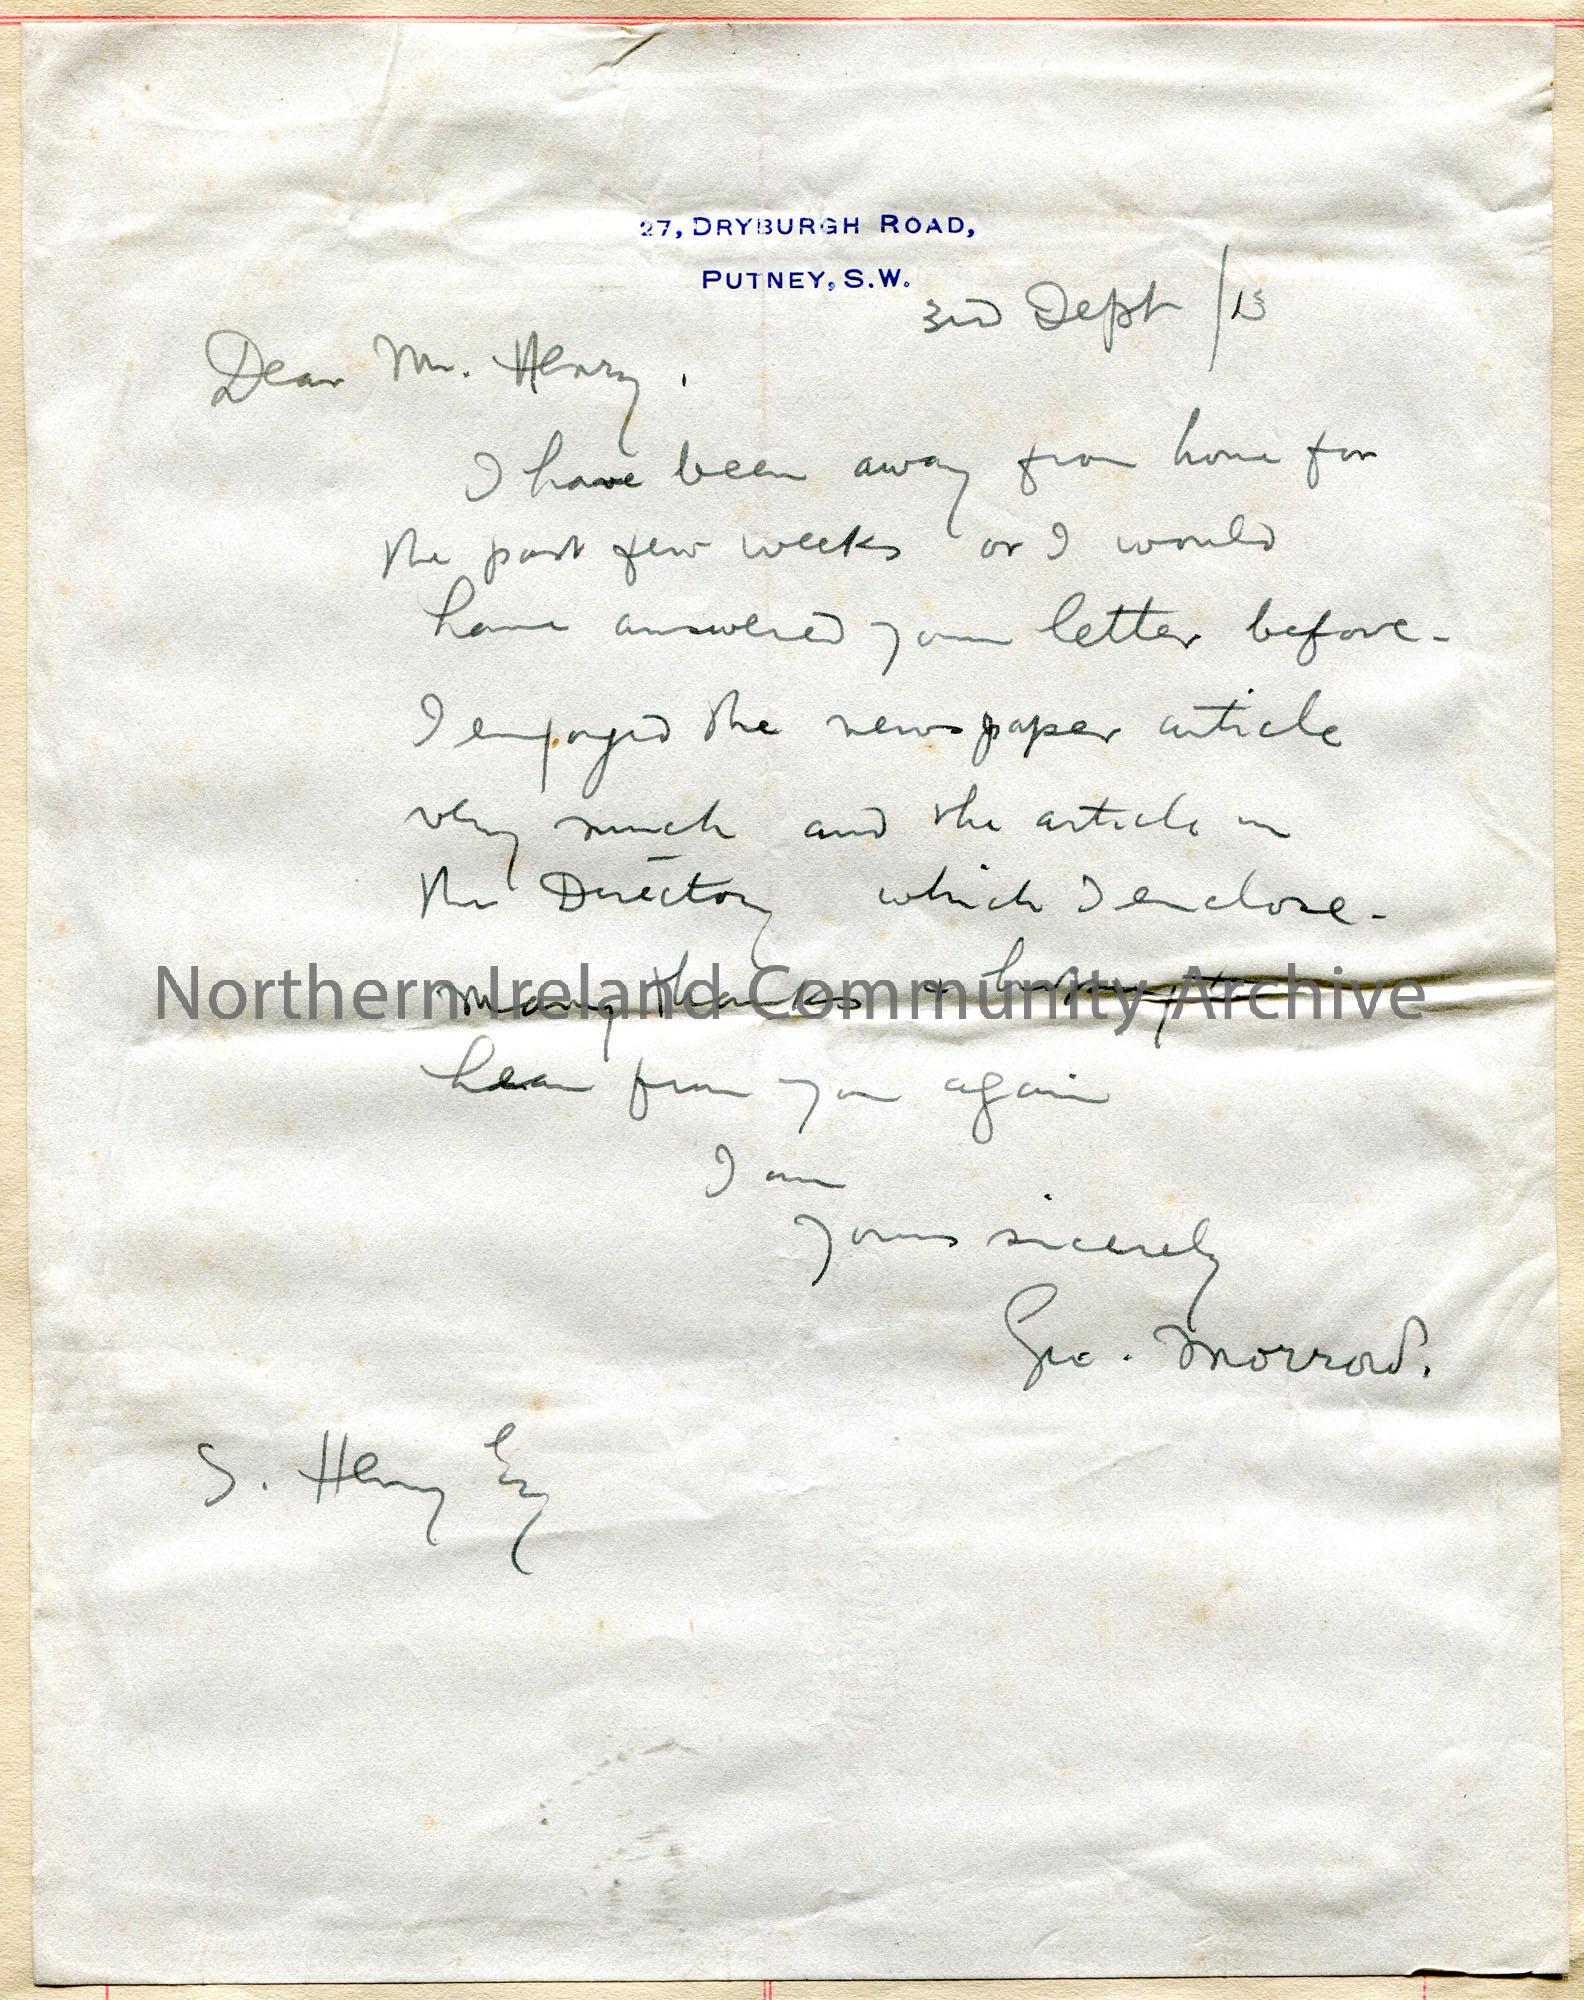 27, DRYBURGH ROAD,
PUTNEY, S.W.
3rd Sept /13
Dear Mr. Henry,
I have been away from home for
the past few weeks or I would
have answered your letter before.
I enjoyed the newspaper article
very much and the article in
the Directory which I enclose.
Many thanks & hoping to
hear from you again
I am
Yours sincerely
Geo. Morrow.
S. Henry Esq
Northern Ireland Community Archive